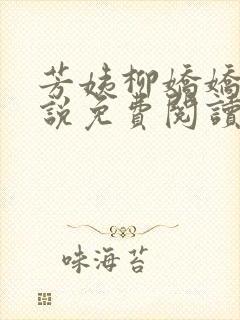 芳姨柳嬌嬌
說免費閱讀
味海苔